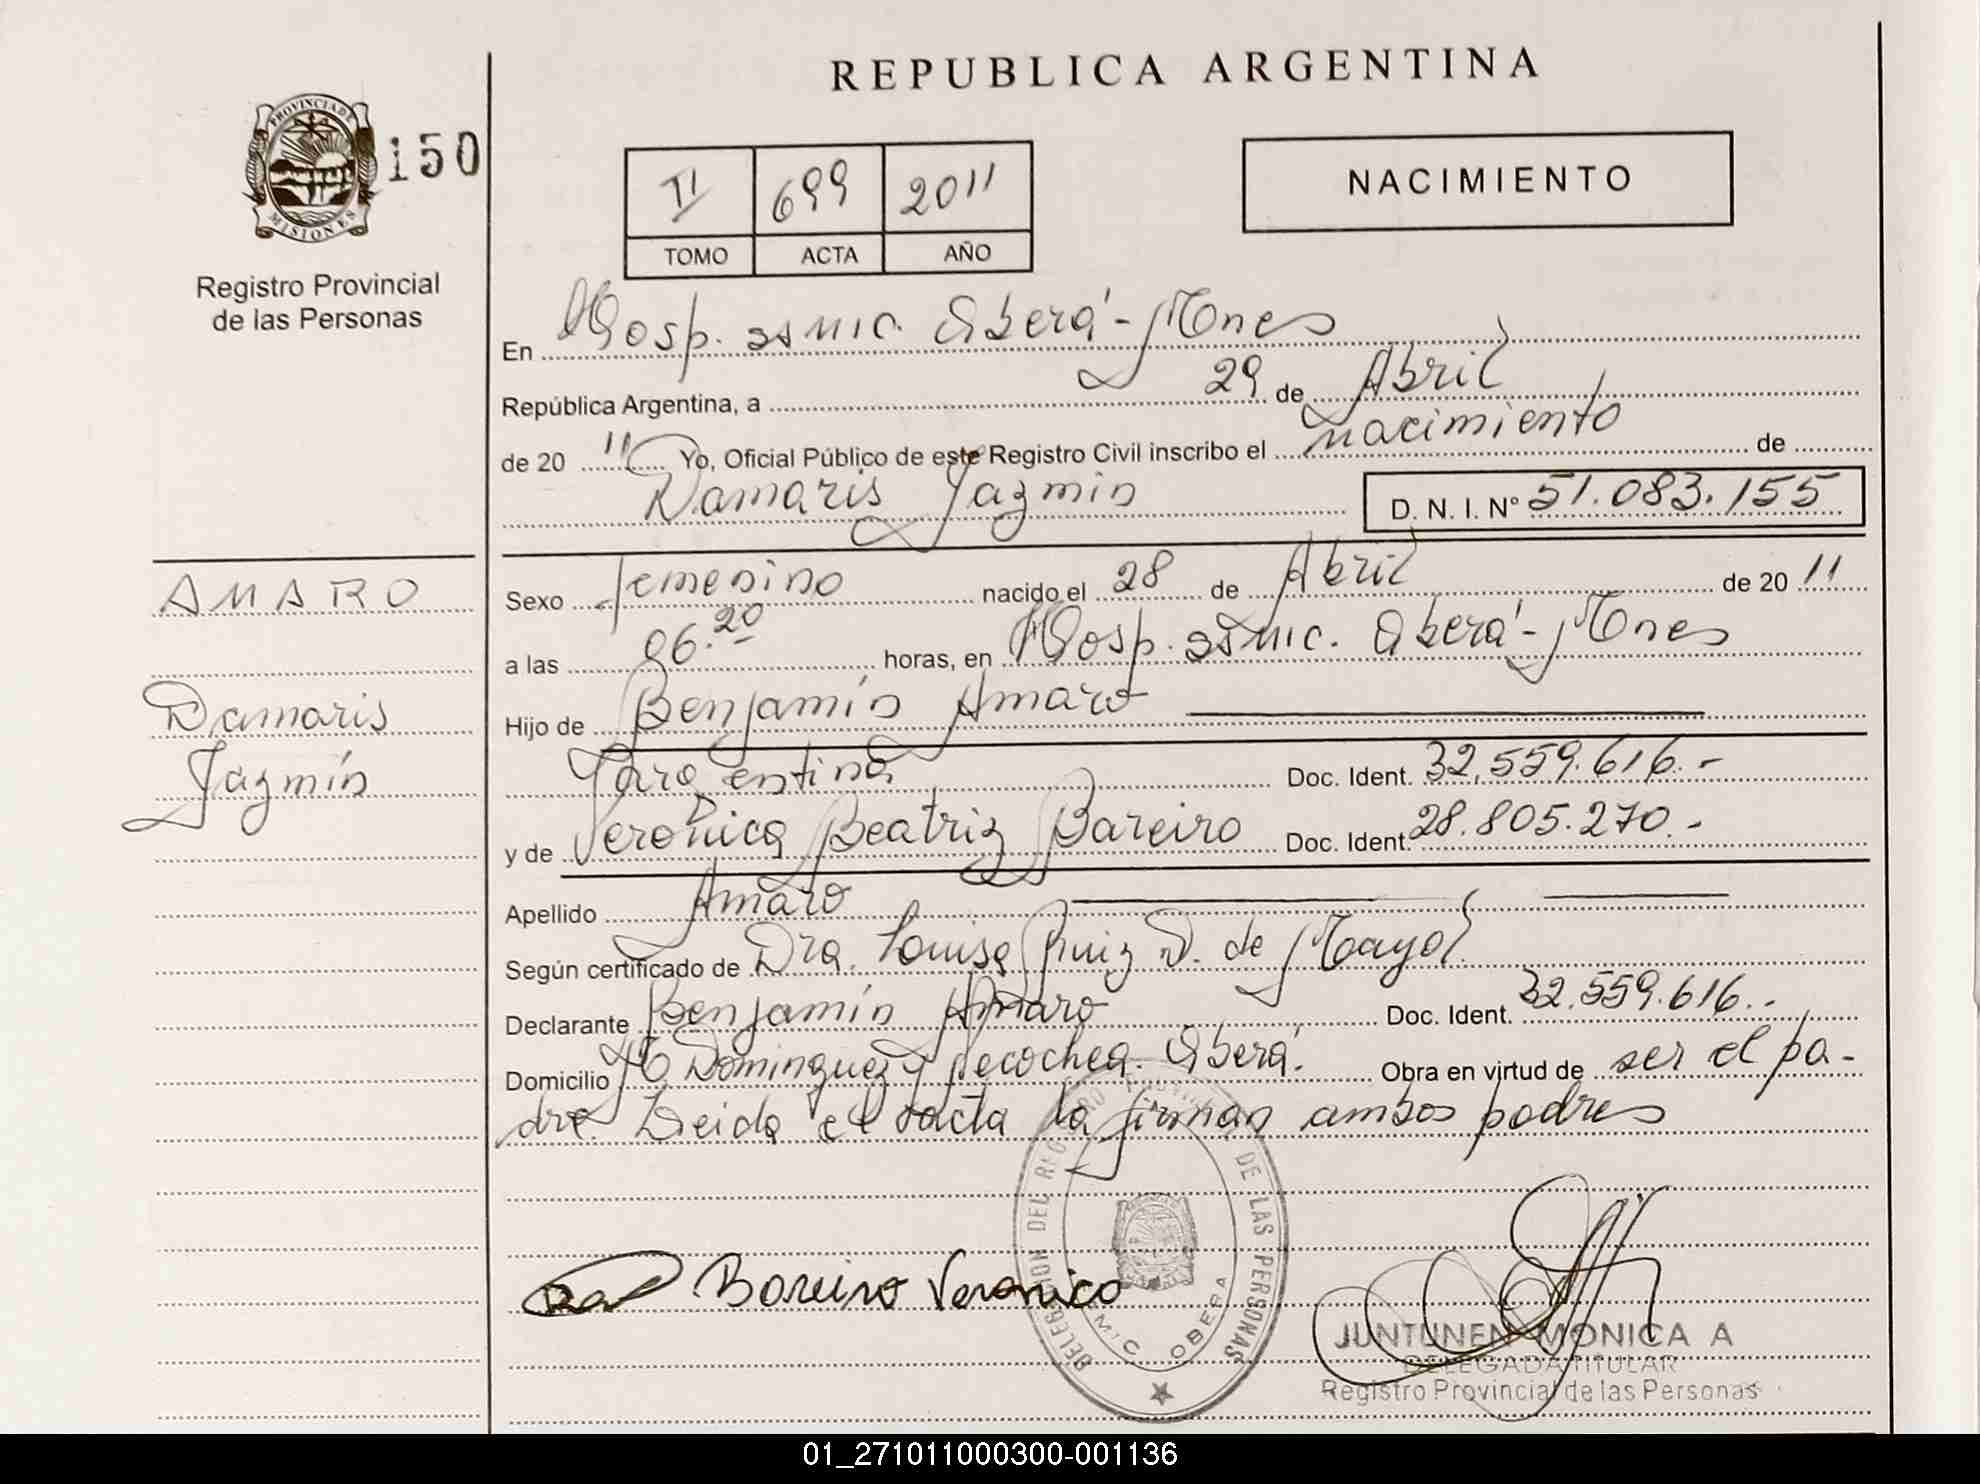 REPUBLICA ARGENTINA
PROVINCIA DE
MISIONES
150
Registro Provincial
de las Personas
II 699 2011
TOMO ACTA AÑO
NACIMIENTO
En Hosp. SAMIC. Oberá - Mnes
República Argentina, a 29 de Abril
de 20 11 Yo, Oficial Público de este Registro Civil inscribo el nacimiento de
Damaris Jazmín D. N. I. Nº 51.083.155
AMARO
Damaris
Jazmín
Sexo femenino nacido el 28 de Abril de 20 11
a las 06.20 horas, en Hosp. SAMIC. Oberá - Mnes
Hijo de Benjamín Amaro
Argentina Doc. Ident. 32.559.616.-
y de Veronica Beatriz Bareiro Doc. Ident. 28.805.270.-
Apellido Amaro
Según certificado de Dra. Louisa Ruiz D. de Mayol
Declarante Benjamín Amaro Doc. Ident. 32.559.616.-
Domicilio Dominguez y Necochea. Oberá. Obra en virtud de ser el pa-
dre. Leida el acta la firman ambos padres
Bareiro Veronica
DELEGACION DEL REGISTRO PROVINCIAL DE LAS PERSONAS
SAMIC OBERA
JUNTUNEN MONICA A
DELEGADA TITULAR
Registro Provincial de las Personas
01_271011000300-001136